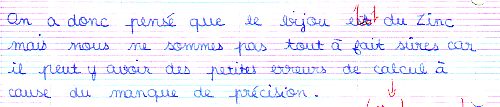 On a donc pensé que le bijou est du zinc
mais nous ne sommes pas tout à fait sûres car
il peut y avoir des petites erreurs de calcul à
cause du manque de précision.